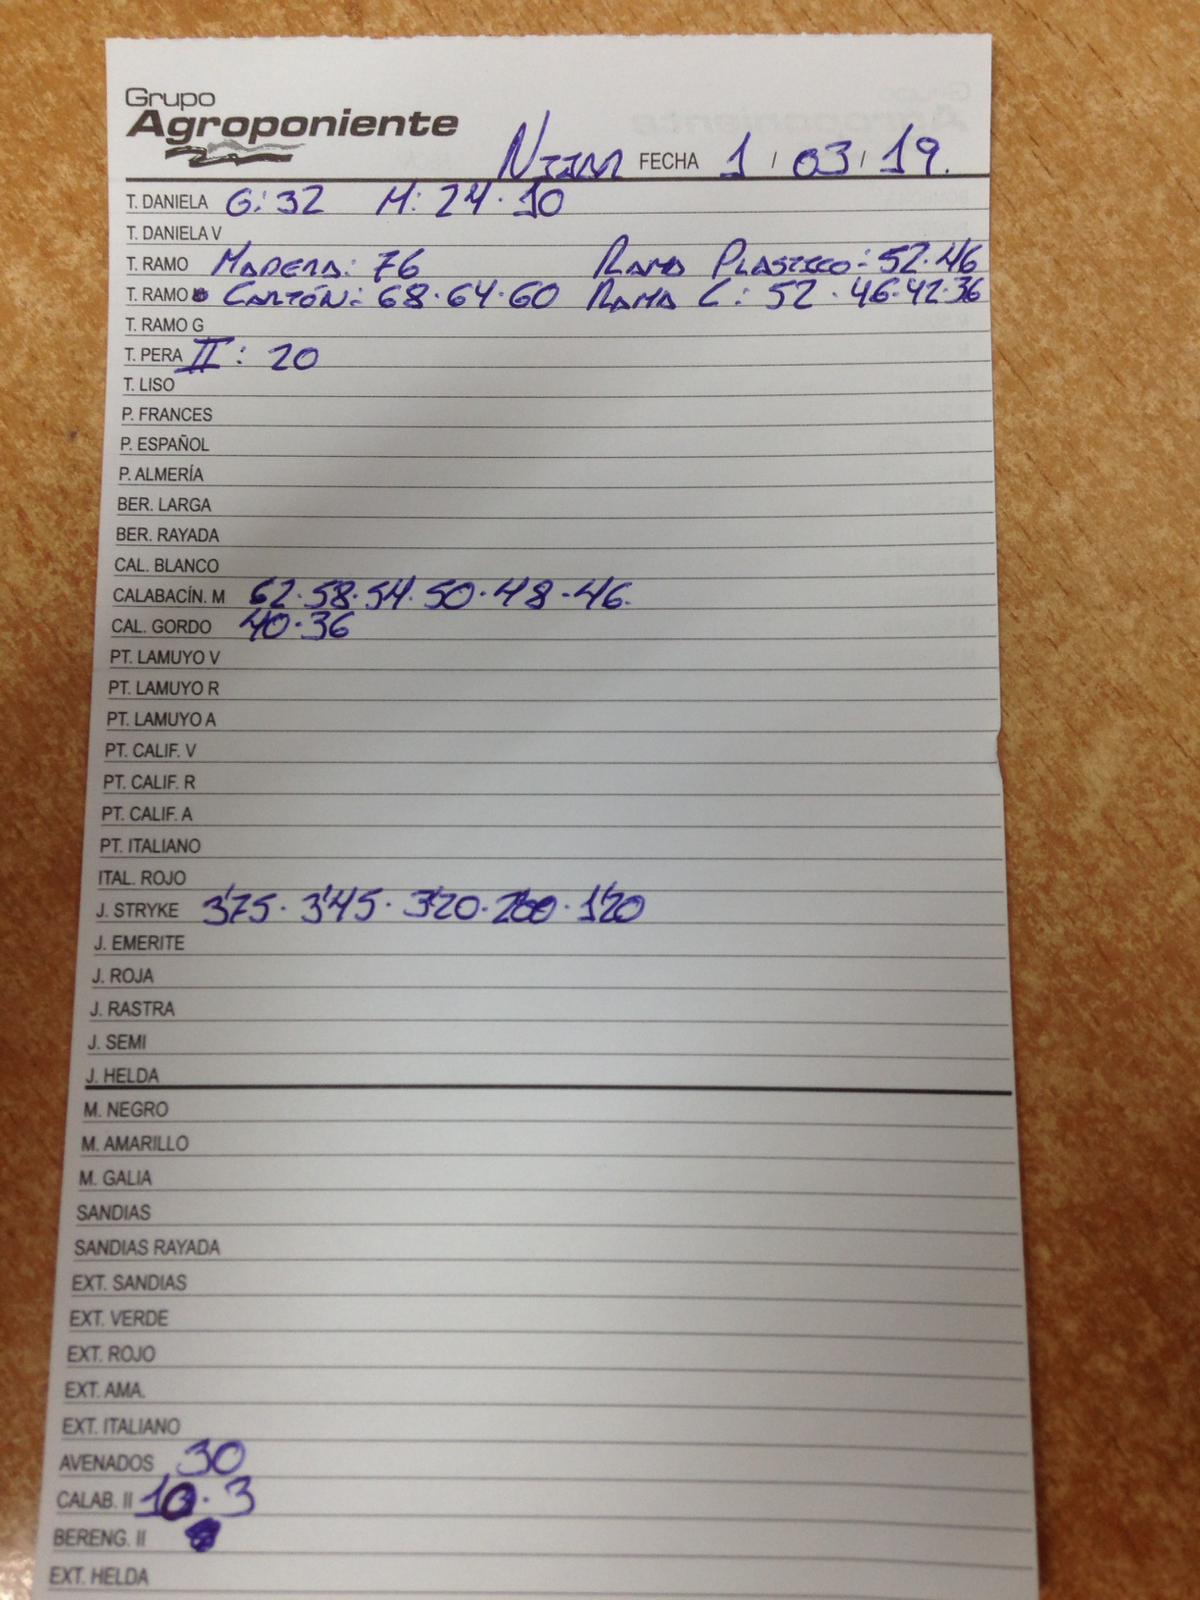 Grupo
Agroponiente
Nijar FECHA 1 / 03 / 19.
T. DANIELA G: 32 M: 24 · 10
T. DANIELA V
T. RAMO MADERA: 76 RAMA PLASTICO: 52·46
T. RAMO CARTÓN: 68·64·60 RAMA C: 52 · 46·42·36
T. RAMO G
T. PERA II: 20
T. LISO
P. FRANCES
P. ESPAÑOL
P. ALMERÍA
BER. LARGA
BER. RAYADA
CAL. BLANCO
CALABACÍN. M 62·58·54·50·48·46.
CAL. GORDO 40·36
PT. LAMUYO V
PT. LAMUYO R
PT. LAMUYO A
PT. CALIF. V
PT. CALIF. R
PT. CALIF. A
PT. ITALIANO
ITAL. ROJO
J. STRYKE 3'75· 3'45· 3'20· 2'00· 1'20
J. EMERITE
J. ROJA
J. RASTRA
J. SEMI
J. HELDA
M. NEGRO
M. AMARILLO
M. GALIA
SANDIAS
SANDIAS RAYADA
EXT. SANDIAS
EXT. VERDE
EXT. ROJO
EXT. AMA.
EXT. ITALIANO
AVENADOS 30
CALAB. II 10·3
BERENG. II
EXT. HELDA